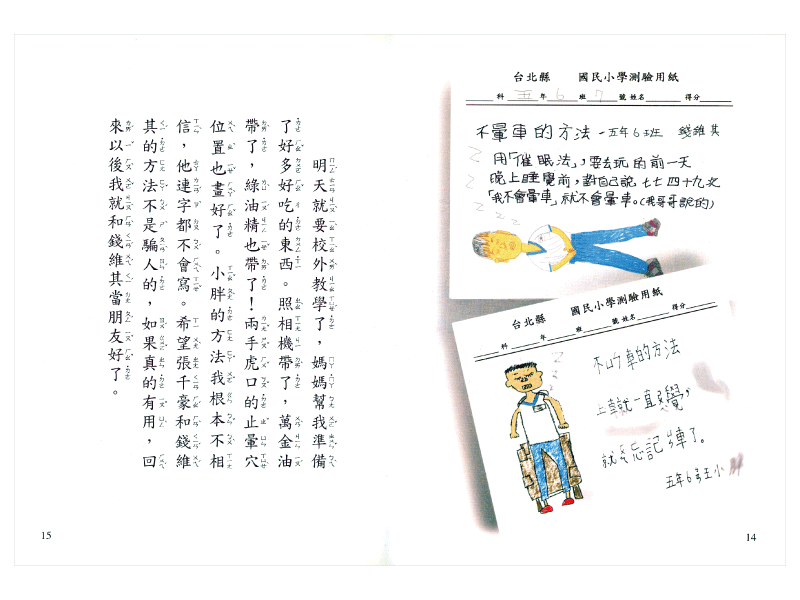 台北縣 國民小學測驗用紙
科 五 年 6 班 7 號 姓名 得分
不暈車的方法 一五年6班 錢維其
用「催眠法」,要去玩的前一天
晚上睡覺前,對自己說七七四十九次
「我不會暈車」就不會暈車。(我哥哥說的)
z z z
台北縣 國民小學測驗用紙
科 年 班 號 姓名 得分
車的方法
上車就一直
就 忘記 車了。
五年6 王小
14
明天就要校外教學了,媽媽幫我準備
了好多好吃的東西。照相機帶了,萬金油
帶了,綠油精也帶了!兩手虎口的止暈穴
位置也畫好了。小胖的方法我根本不相
信,他連字都不會寫。希望張千豪和錢維
其的方法不是騙人的,如果真的有用,回
來以後我就和錢維其當朋友好了。
15